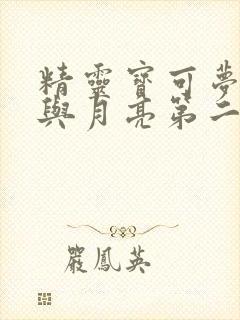 精靈寶可夢
與月亮第二
嚴鳳英